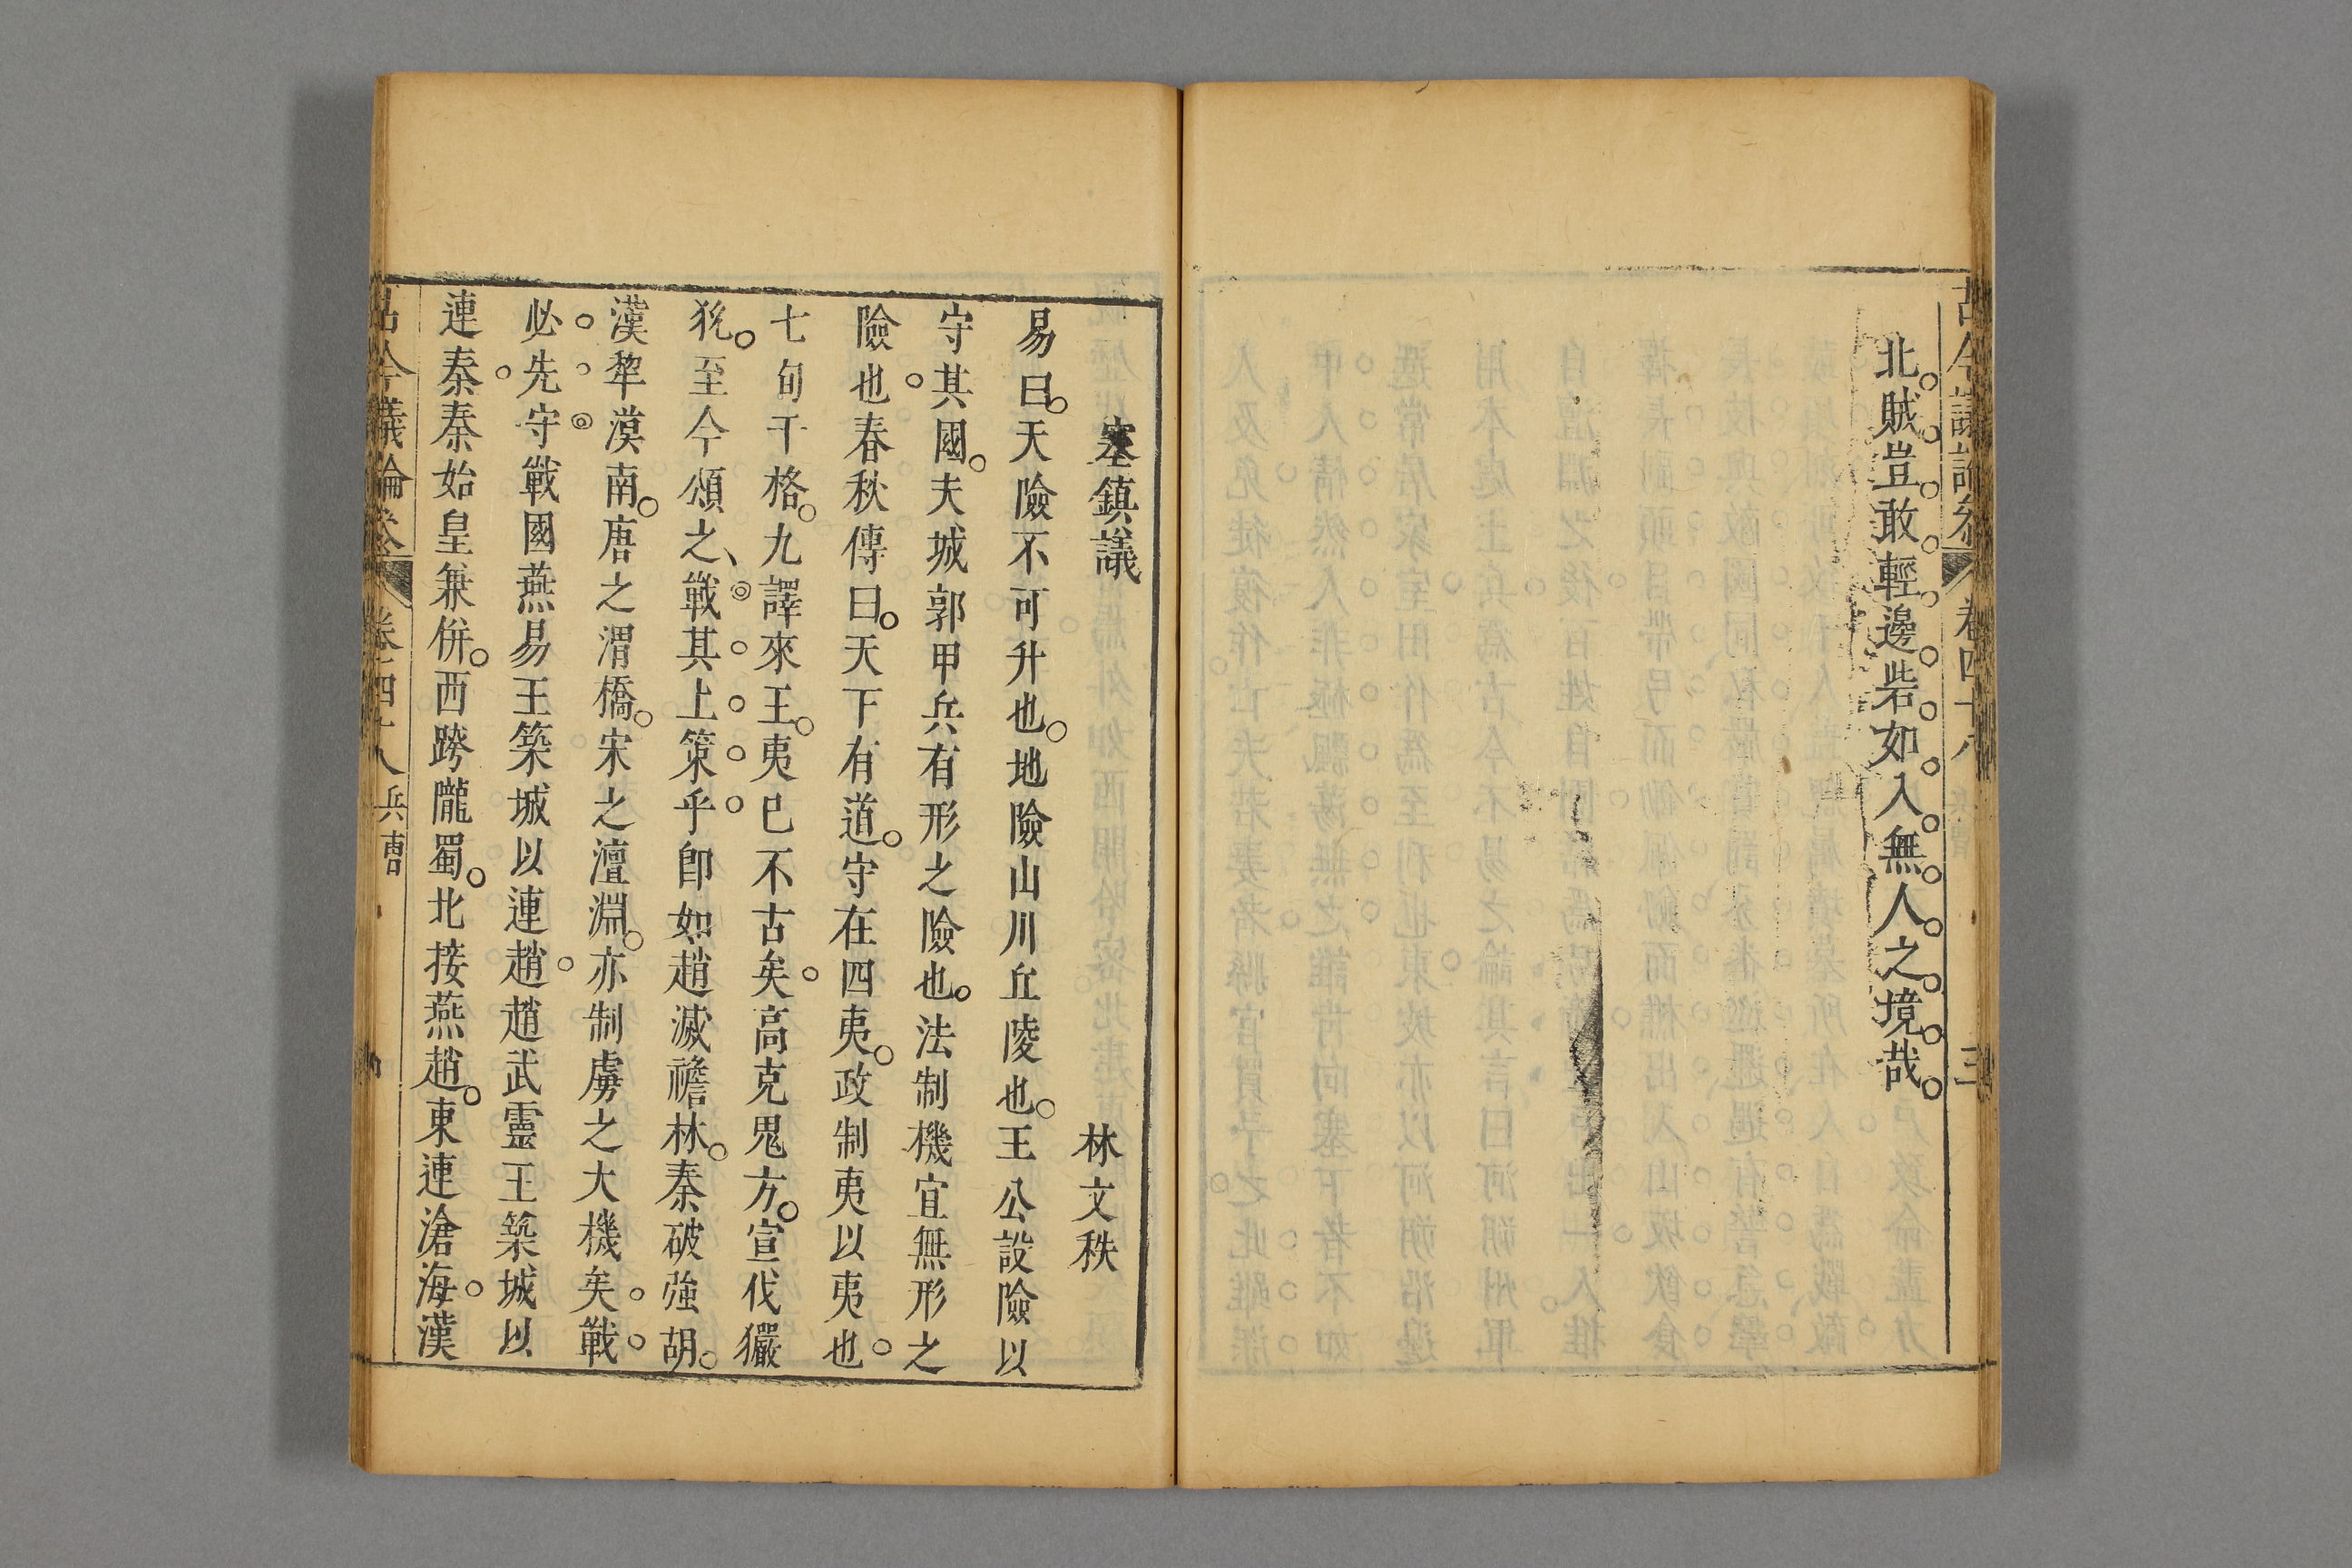 古今議論參
卷四十八
三
北賊豈敢輕邊砦如入無人之境哉
塞鎮議
林文秩
易曰天險不可升也地險山川丘陵也王公設險以
守其國夫城郭甲兵有形之險也法制機宜無形之
險也春秋傳曰天下有道守在四夷政制夷以夷也
七旬干格九譯來王夷巳不古矣高克鬼方宣伐玁
狁至今頌之戰其上策乎卽如趙滅襜林秦破強胡
漢犂漠南唐之渭橋宋之澶淵亦制虜之大機矣戰
必先守戰國燕易王築城以連趙趙武靈王築城以
連秦秦始皇兼併西跨隴蜀北接燕趙東連滄海漢
古今議論參
卷四十八
兵曹